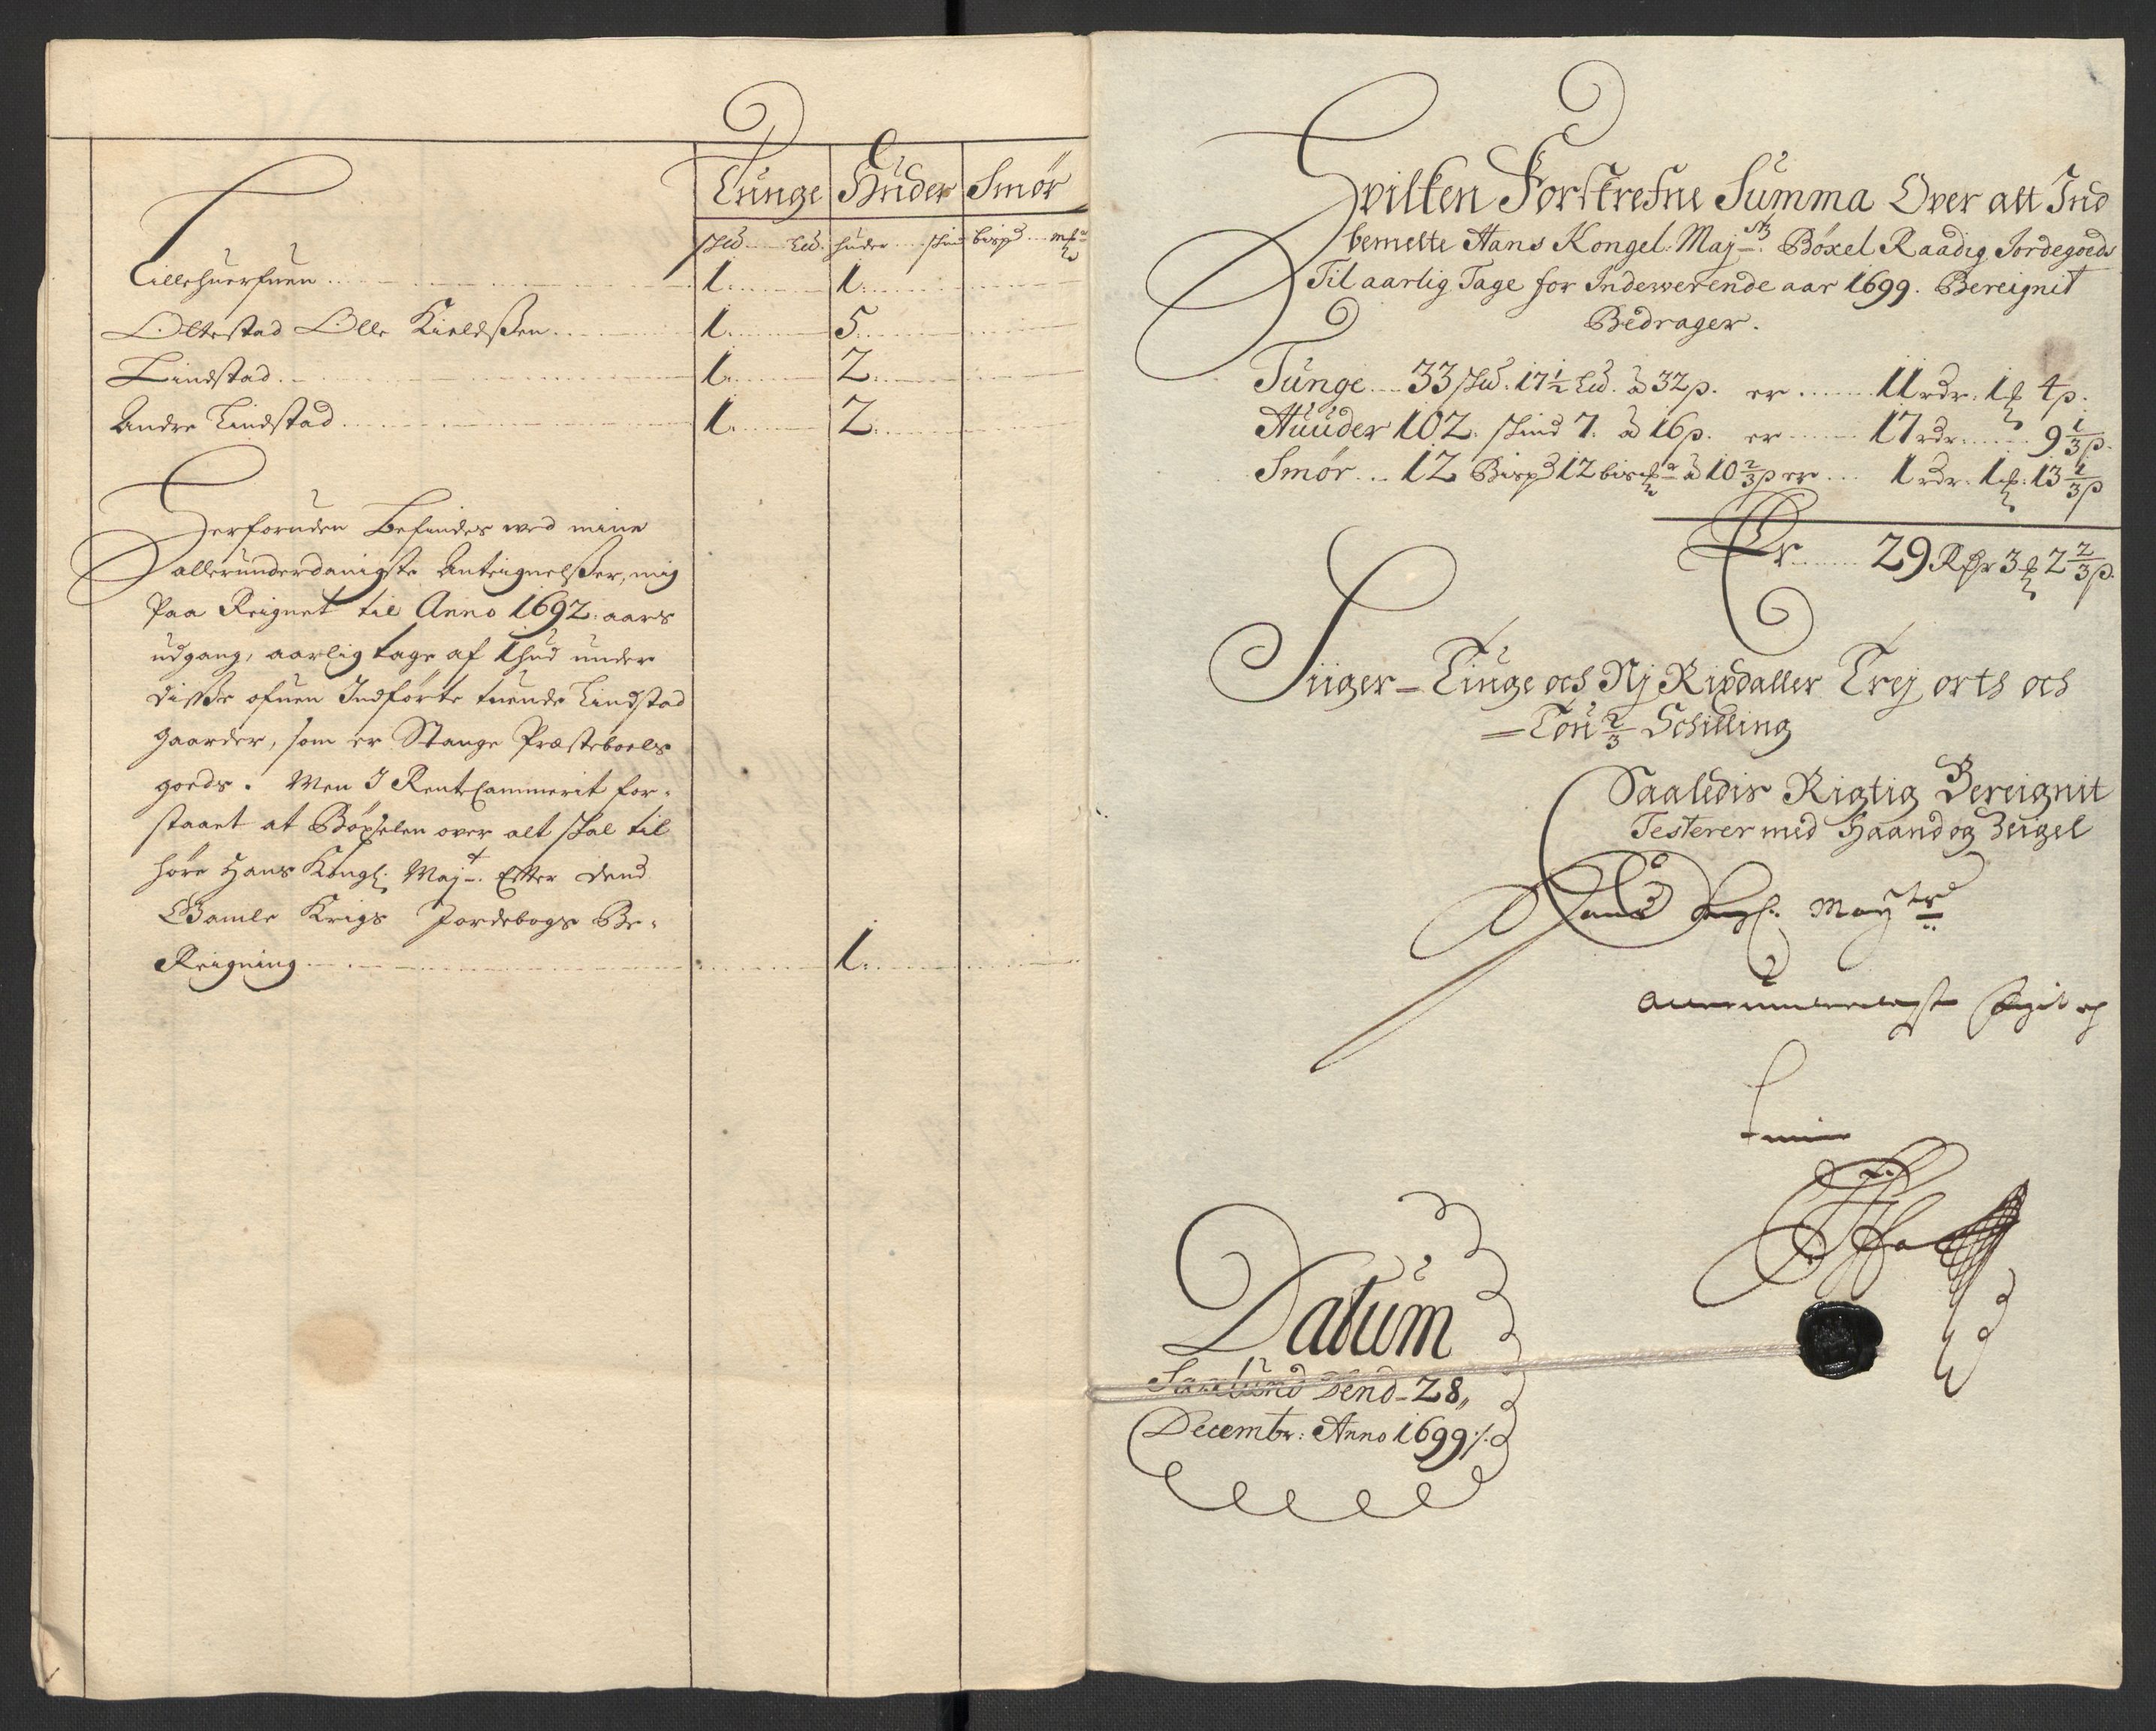 Tunge Huder Smör
skd Ld. huder skind bispd mk
Lillehuerfuen 1. 1.
Oltestad Olle Kieldssen 1. 5.
Lindstad 1. 2.
Andre Lindstad 1. 2.
Herforuden Befindes wed mine
allerunderdanigste Anteignelsser, mig
Paa Reignet til Anno 1692. aars
udgang, aarlig tage af 1 hud under
disse ofuen Indförte tuende Lindstad
gaarder, som er Stange Præsteboels
goeds. Men I RenteCammerit for-
staaet at Böxelen over alt skal til
höre Hans Kongl: Majt. Efter dend
Gamle Krigs Jordebogs Be-
Reigning 1.
Hvilken Forskrefne Summa Over alt Ind
bemelte Hans Kongel. Majts. Böxel Raadig Jordegoeds
Til aarlig Tage for Indewerende aar 1699. Bereignit
Bedrager.
Tunge 33 skd. 17½ Ld. à 32 β. er 11 rdr. 1 ℔ 4 β.
Huuder 102. skind 7. à 16 β. er 17 rdr. 9 1/3 β.
Smör 12 Bispd 12 bismk à 10 2/3 β er 1 rdr. 1 ℔. 13 1/3 β
Er 29 Rdr 3 ℔ 2 2/3 β.
Siiger - Tiuge och Nj Rixdaller Trej orts och
- Tou 2/3 Schilling
Saaledis Rigtig Bereignit
Testerer med Haand og Zeigel
Hans Kongl. Mayts
allerunderdanigst
Datum
dend 28,,
Decembr: Anno 1699 ./.